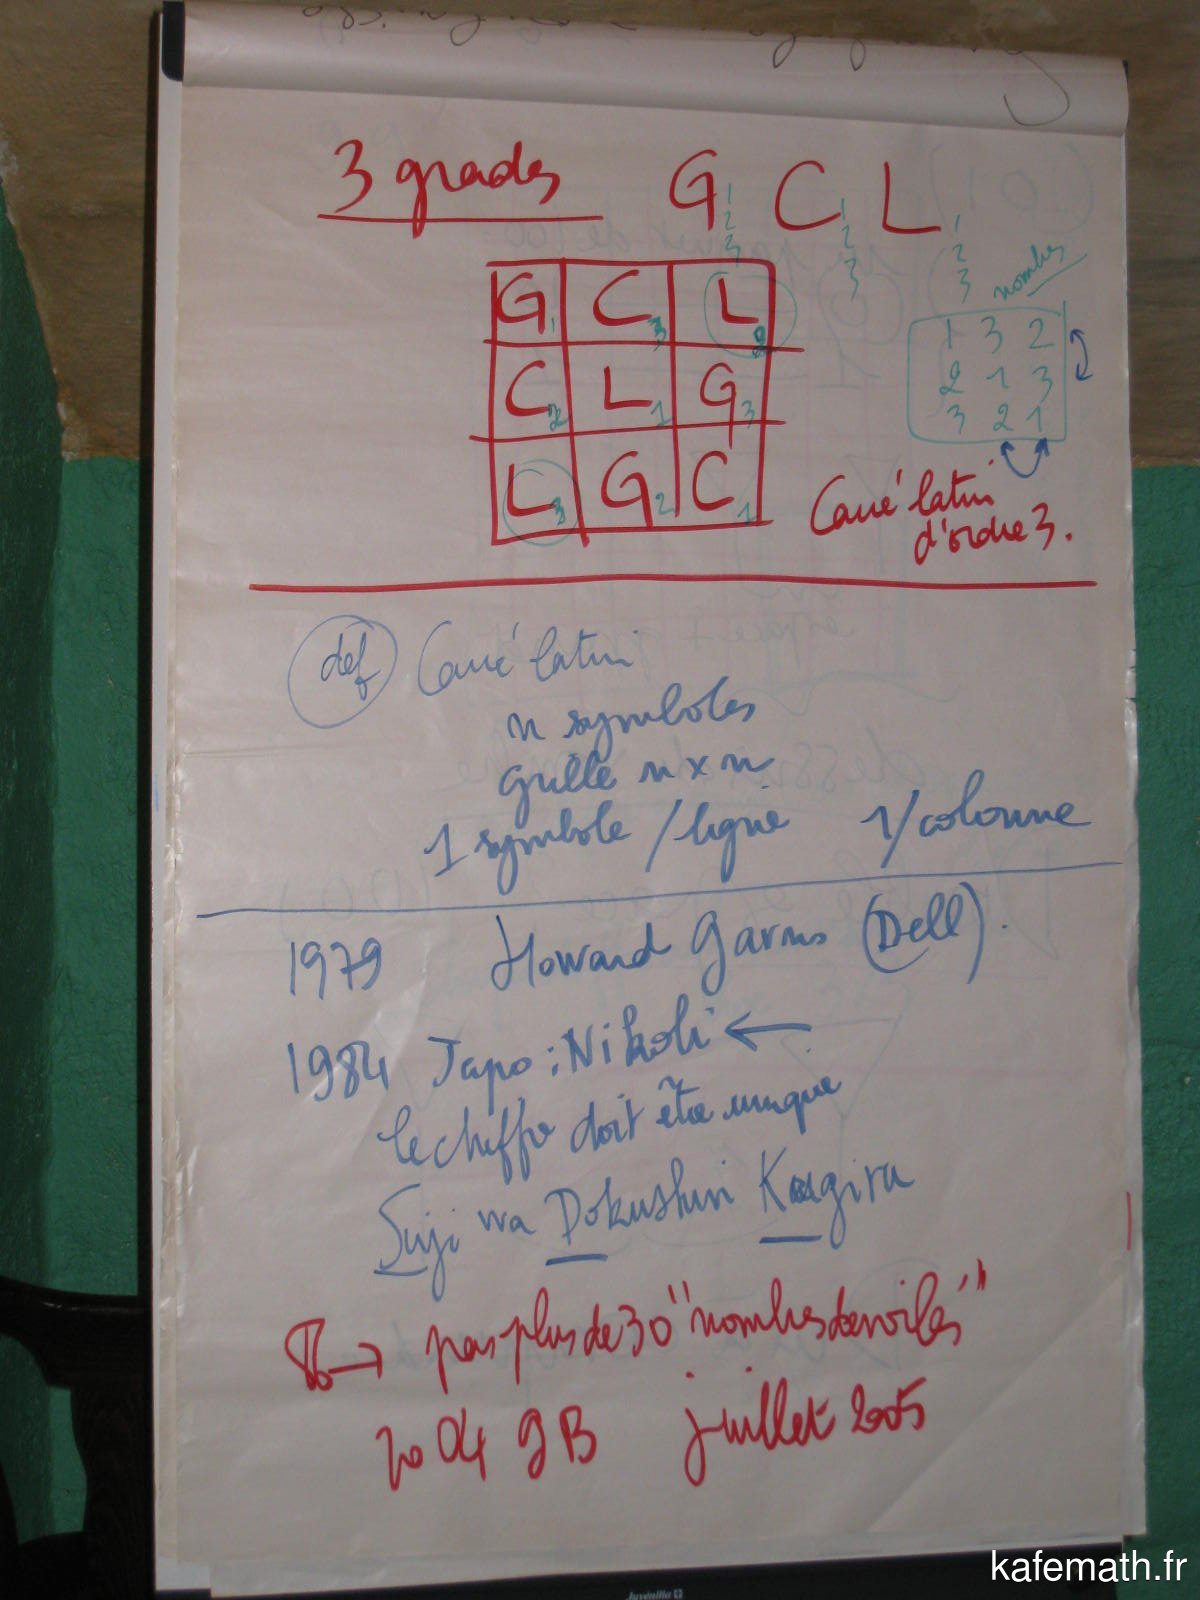 3 grades G C L
1 2 3
1 2 3
1 2 3
nombres
G1 C3 L2
C2 L1 G3
L3 G2 C1
1 3 2
2 1 3
3 2 1
Carré latin
d'ordre 3.
déf Carré latin
n symboles
grille n x n
1 symbole / ligne 1/colonne
1979 Howard Garns (Dell).
1984 Japo : Nikoli ←
le chiffre doit être unique
Suji wa Dokushin Kagiru
→ pas plus de 30 "nombres dévoilés"
2004 GB juillet 2005
kafemath.fr